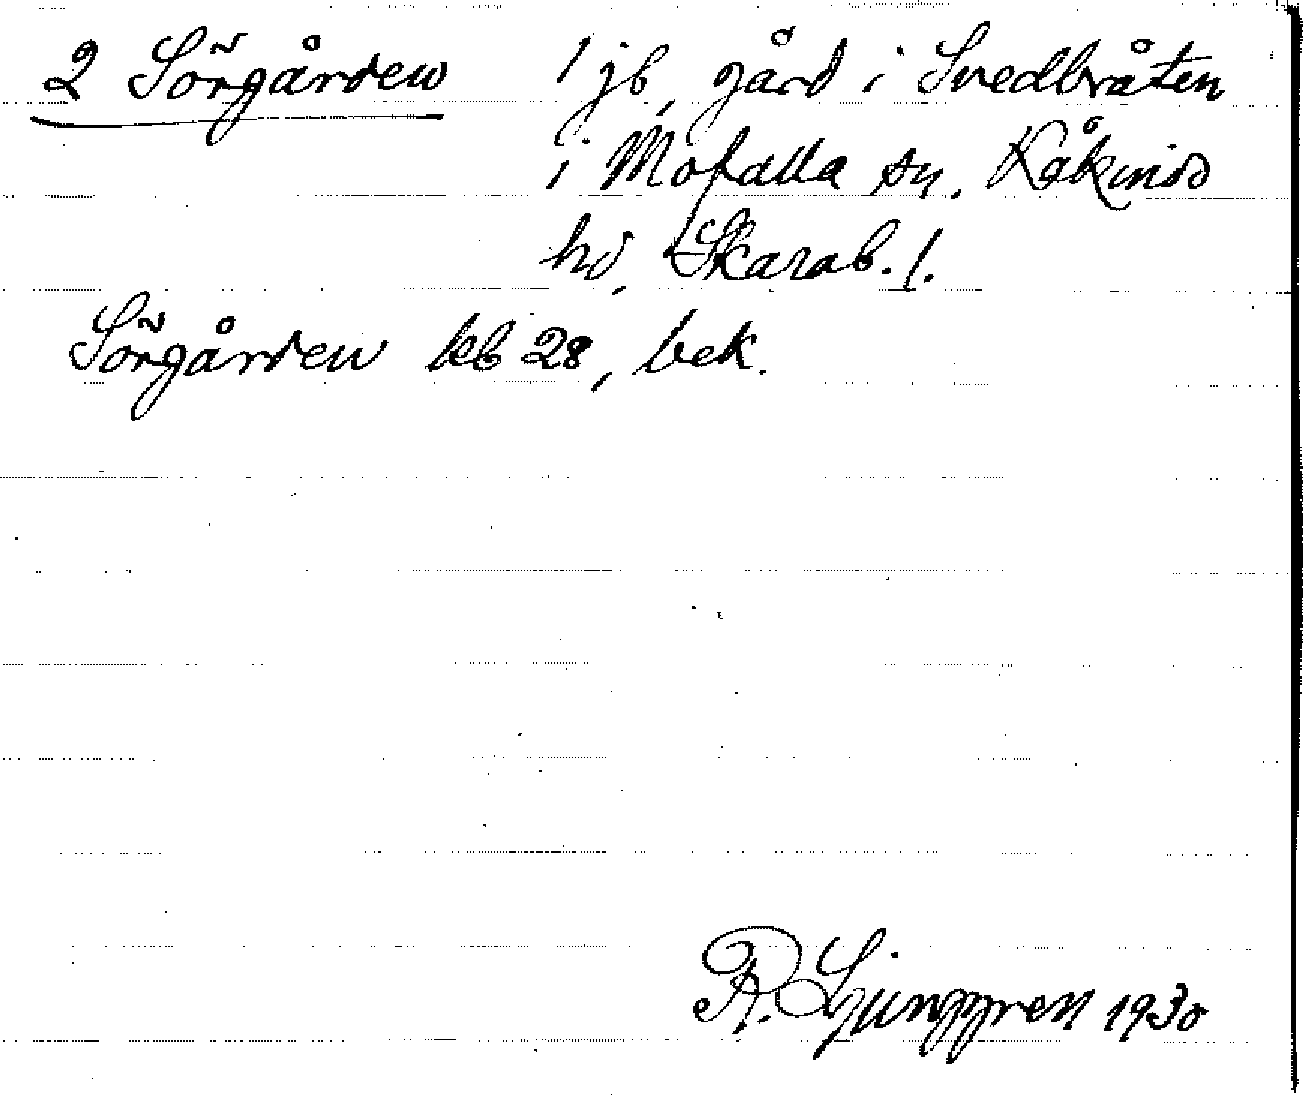 2 Sörgården 1 jb, gård i Svedbråten
i Mofalla sn. Kåkinds
hd, Skarab. l.
Sörgården kb 28, bek.
R. Ljunggren 1930